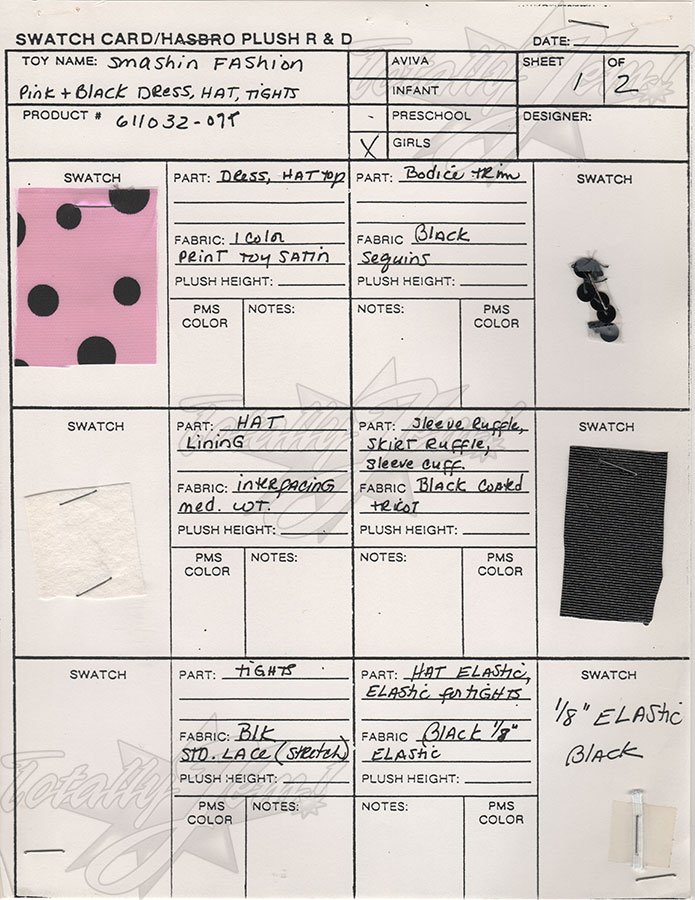 SWATCH CARD/HASBRO PLUSH R & D
DATE:
TOY NAME: Smashin FAShion
Pink + BLACK DRESS, HAT, TIGHTS
PRODUCT # 611032-098
AVIVA
INFANT
- PRESCHOOL
X GIRLS
SHEET 1 OF 2
DESIGNER:
SWATCH
PART: DRESS, HAT TOP
FABRIC: 1 Color
PRINT TOY SATIN
PLUSH HEIGHT:
PMS COLOR
NOTES:
PART: Bodice TRIM
FABRIC BLACK
Sequins
PLUSH HEIGHT:
NOTES:
PMS COLOR
SWATCH
SWATCH
PART: HAT
LINING
FABRIC: interfacing
med. WT.
PLUSH HEIGHT:
PMS COLOR
NOTES:
PART: Sleeve Ruffle,
SKIRT Ruffle,
Sleeve cuff.
FABRIC BLACK Coated
TRICOT
PLUSH HEIGHT:
NOTES:
PMS COLOR
SWATCH
SWATCH
PART: TIGHTS
FABRIC: BLK
STD. LACE (Stretch)
PLUSH HEIGHT:
PMS COLOR
NOTES:
PART: HAT ELASTIC,
ELASTIC for TIGHTS
FABRIC BLACK 1/8"
ELASTIC
PLUSH HEIGHT:
NOTES:
PMS COLOR
SWATCH
1/8" ELASTIC
BLACK
Totally Jem!
Totally Jem!
Totally Jem!